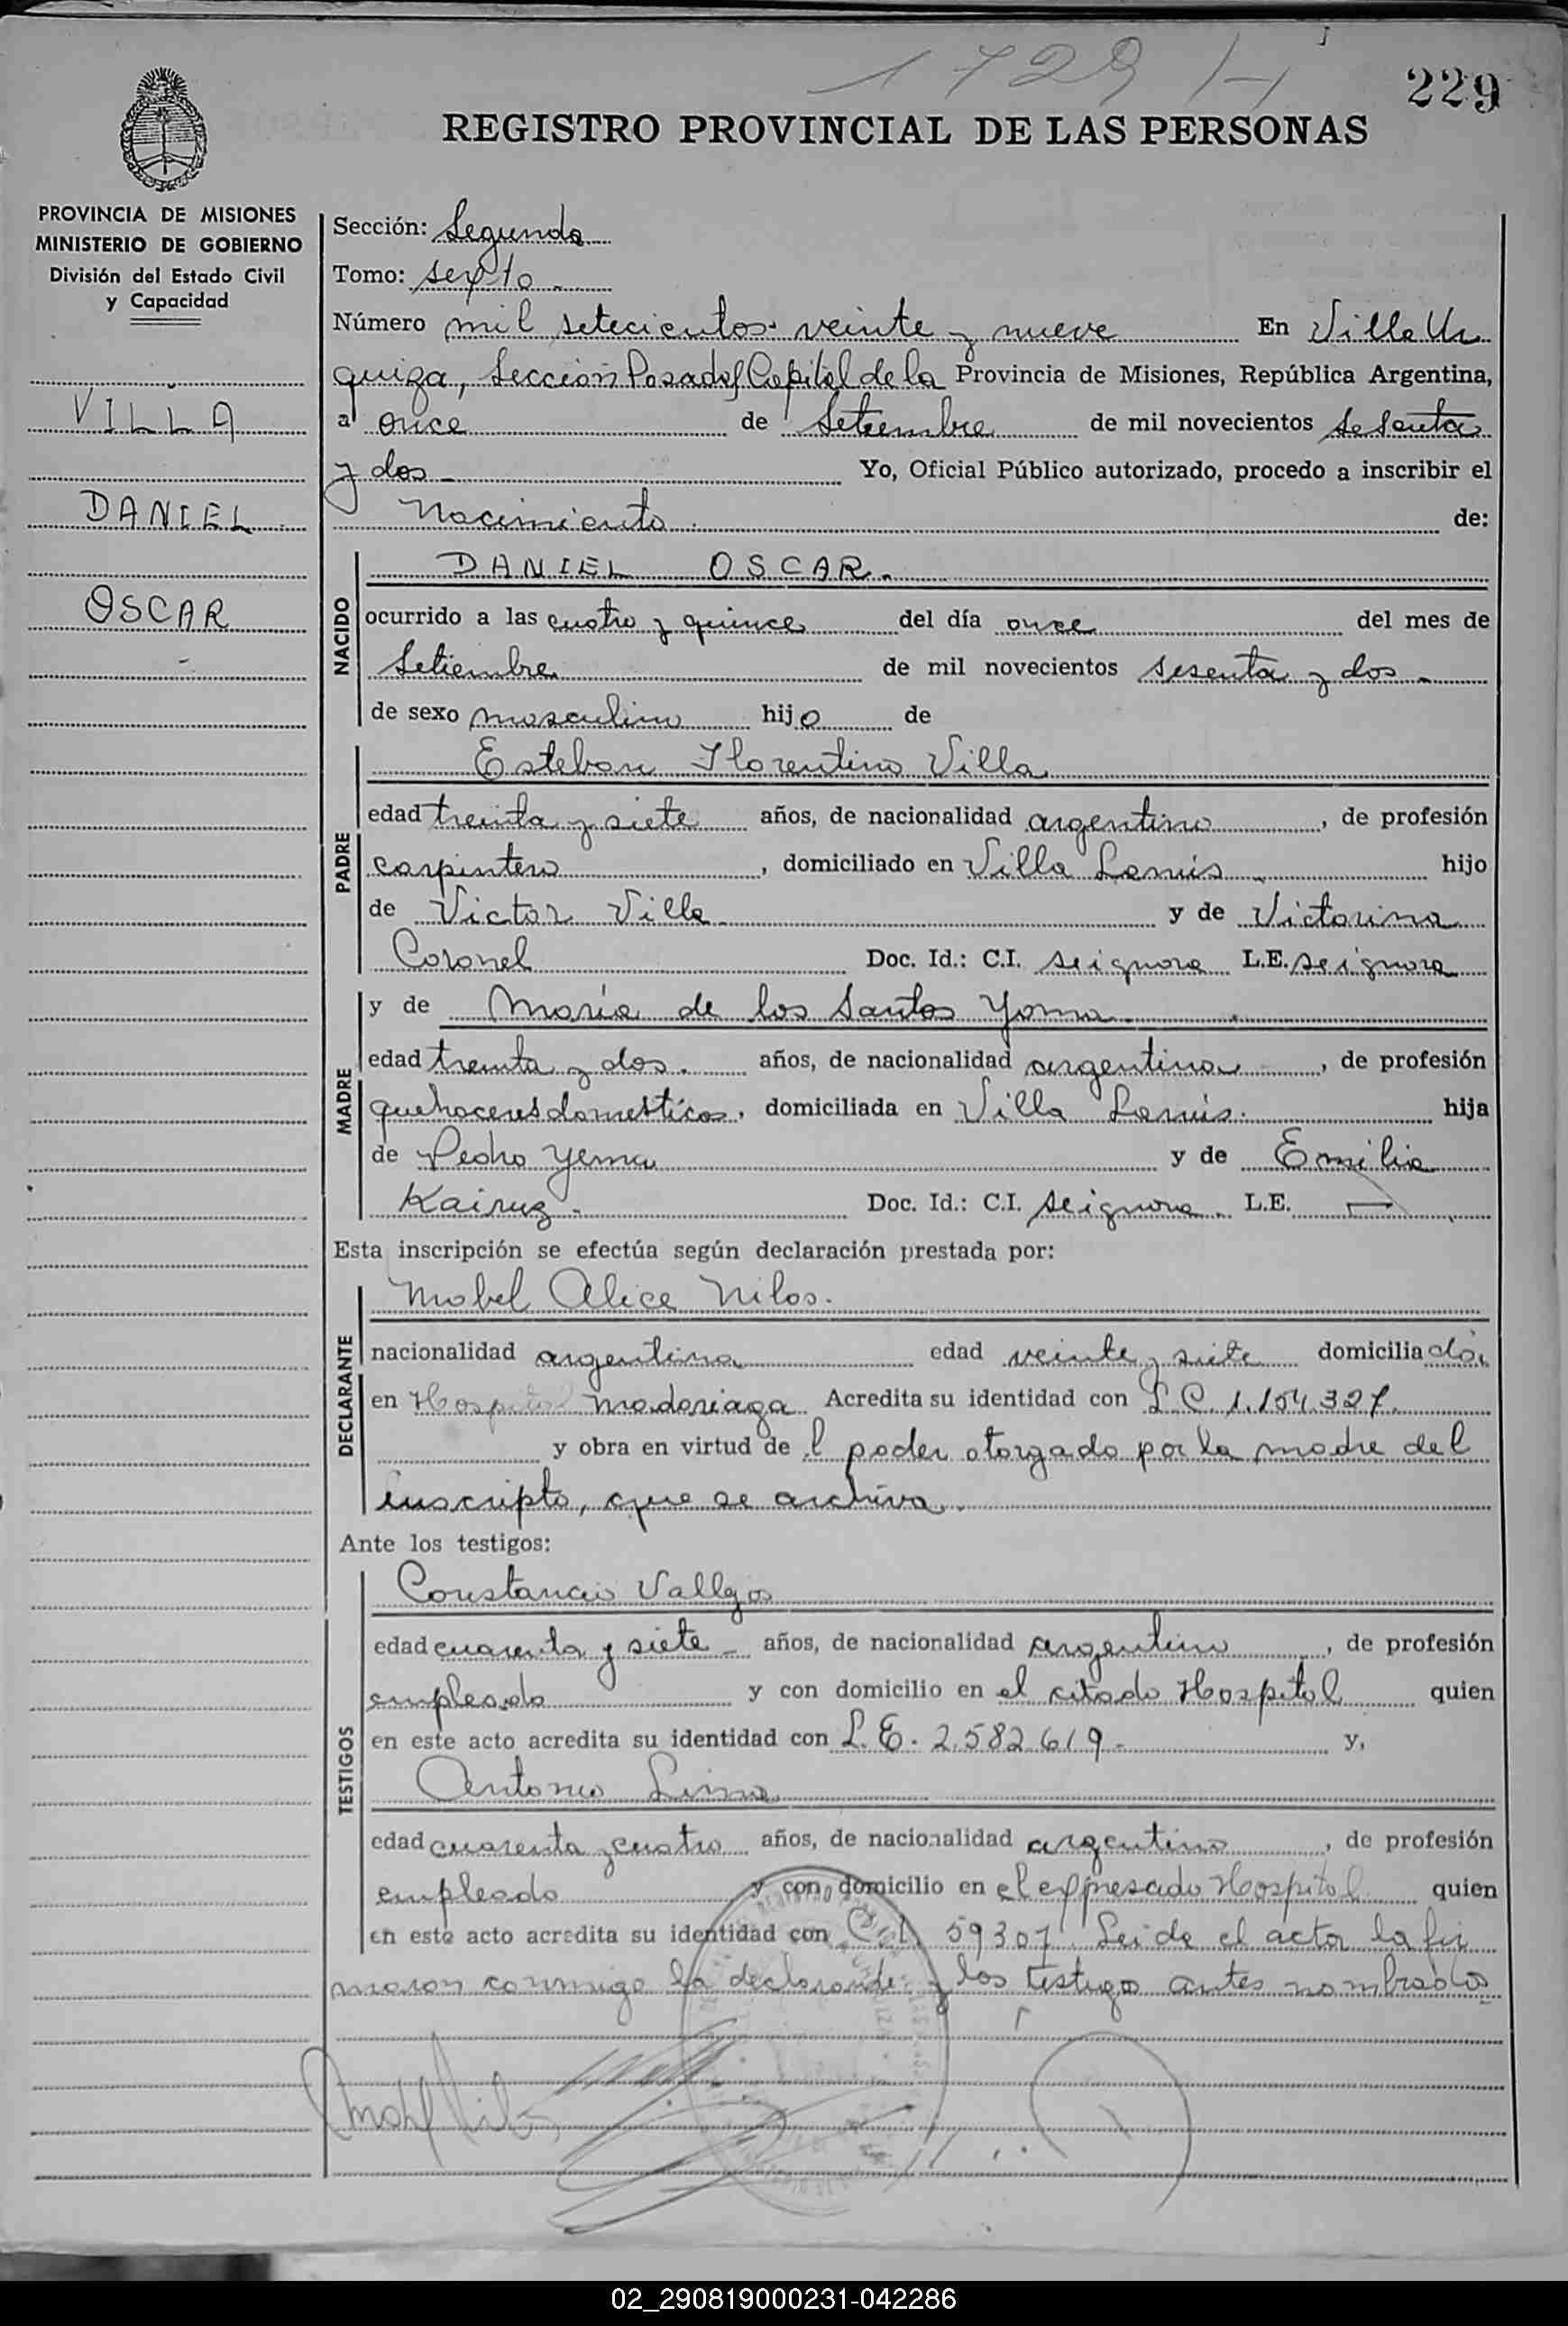 1729
229
REGISTRO PROVINCIAL DE LAS PERSONAS
PROVINCIA DE MISIONES
MINISTERIO DE GOBIERNO
División del Estado Civil
y Capacidad
VILLA
DANIEL
OSCAR
Sección: Segunda
Tomo: sexto
Número mil setecientos veinte y nueve En Villa Ur
quiza, Sección Posadas Capital de la Provincia de Misiones, República Argentina,
a once de Setiembre de mil novecientos sesenta
y dos Yo, Oficial Público autorizado, procedo a inscribir el
Nacimiento de:
NACIDO
DANIEL OSCAR.
ocurrido a las cuatro y quince del día once del mes de
Setiembre de mil novecientos sesenta y dos
de sexo masculino hijo de
PADRE
Esteban Florentino Villa
edad treinta y siete años, de nacionalidad argentino, de profesión
carpintero, domiciliado en Villa Lanús hijo
de Victor Villa y de Victorina
Coronel Doc. Id.: C.I. se ignora L.E. se ignora
MADRE
y de María de los Santos Yoma
edad treinta y dos. años, de nacionalidad argentina, de profesión
quehaceres domesticos, domiciliada en Villa Lanús. hija
de Pedro Yema y de Emilia
Kairuz Doc. Id.: C.I. se ignora. L.E. —
Esta inscripción se efectúa según declaración prestada por:
DECLARANTE
Mabel Alice Nilos.
nacionalidad argentina edad veinte y siete domiciliada
en Hospital Madariaga Acredita su identidad con L.C. 1.154.327.
y obra en virtud de l poder otorgado por la madre del
inscripto, que se archiva.
Ante los testigos:
TESTIGOS
Constancio Vallejos
edad cuarenta y siete años, de nacionalidad argentino, de profesión
empleado y con domicilio en el citado Hospital quien
en este acto acredita su identidad con L.E. 2.582.619 y,
Antonio Lima
edad cuarenta y cuatro años, de nacionalidad argentino, de profesión
empleado y con domicilio en el expresado Hospital quien
en este acto acredita su identidad con C.I. 59307. Leida el acta la fir
maron conmigo la declarante y los testigo antes nombrados
02_290819000231-042286